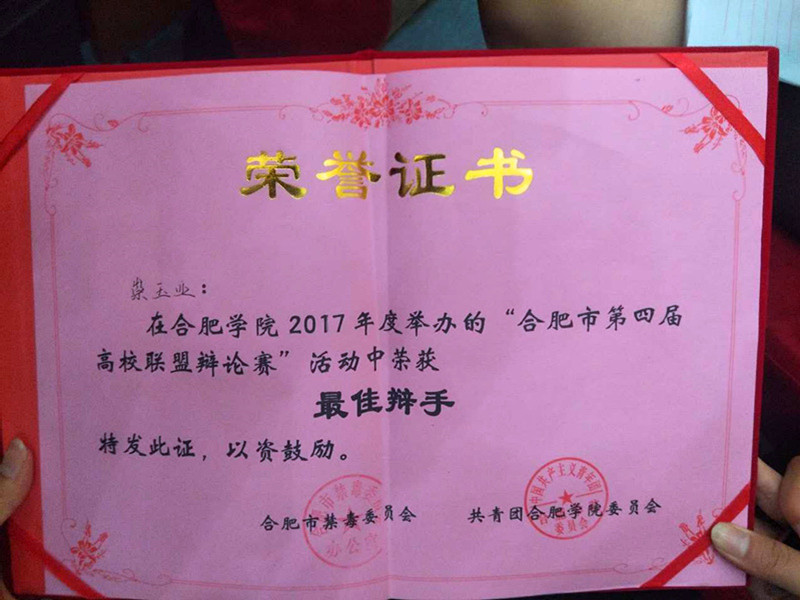 荣誉证书
玉业：
在合肥学院 2017 年度举办的“合肥市第四届
高校联盟辩论赛”活动中荣获
最佳辩手
特发此证，以资鼓励。
合肥市禁毒委员会
共青团合肥学院委员会
合肥市禁毒委员会
办公室
中国共产主义青年团
委员会